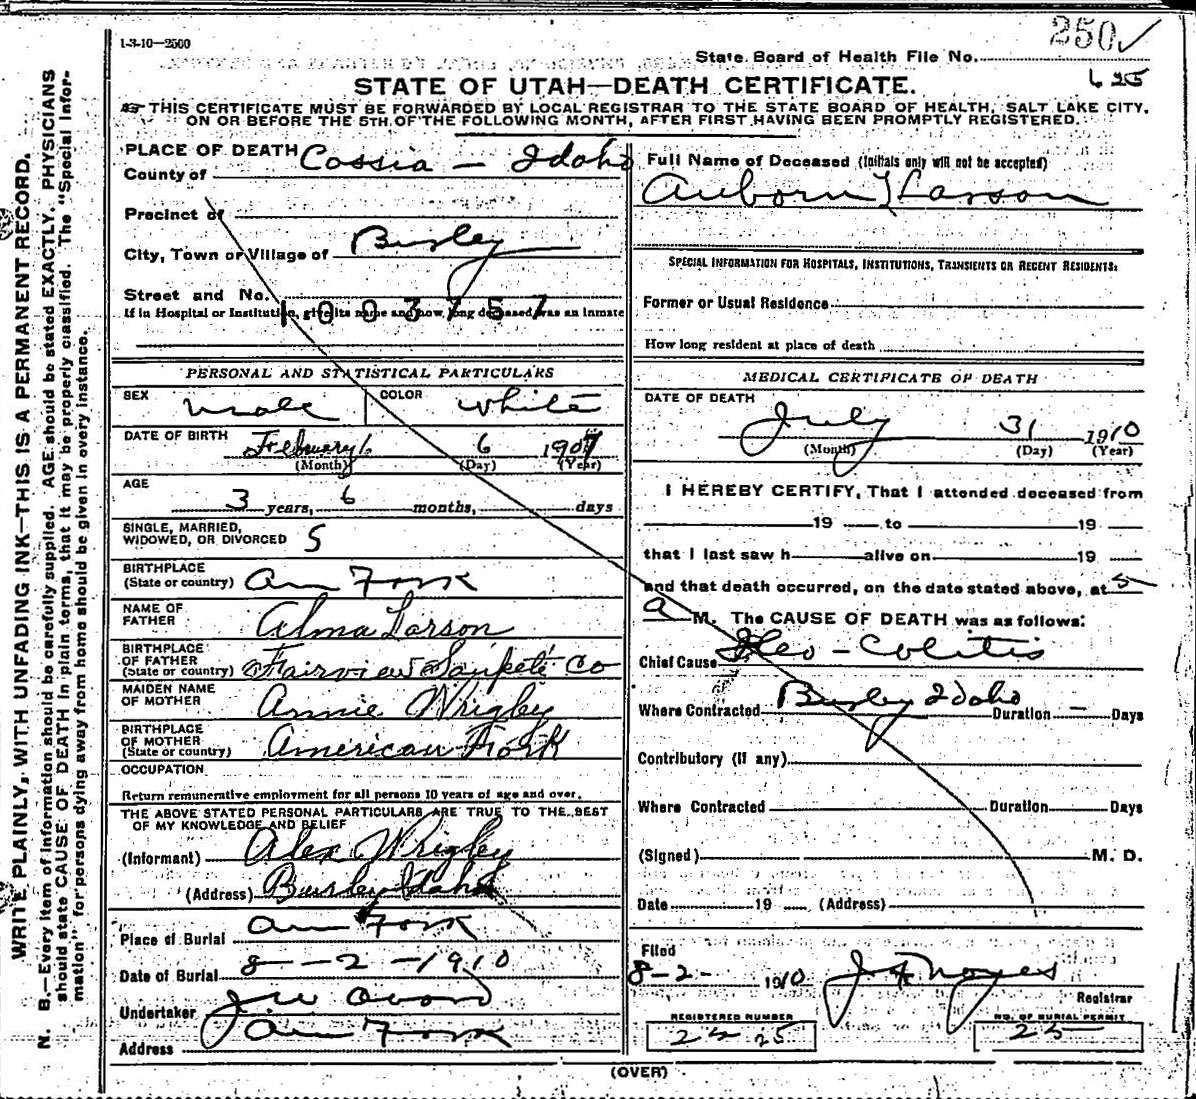 1-3-10—2500
250 ✓
State Board of Health File No.
625
STATE OF UTAH—DEATH CERTIFICATE.
THIS CERTIFICATE MUST BE FORWARDED BY LOCAL REGISTRAR TO THE STATE BOARD OF HEALTH, SALT LAKE CITY,
ON OR BEFORE THE 5TH OF THE FOLLOWING MONTH, AFTER FIRST HAVING BEEN PROMPTLY REGISTERED.
WRITE PLAINLY, WITH UNFADING INK—THIS IS A PERMANENT RECORD.
N. B.—Every item of information should be carefully supplied. AGE should be stated EXACTLY. PHYSICIANS
should state CAUSE OF DEATH in plain terms, that it may be properly classified. The "Special Infor-
mation" for persons dying away from home should be given in every instance.
PLACE OF DEATH
County of Cassia — Idaho
Precinct of
City, Town or Village of Burley
Street and No.
1003757
If in Hospital or Institution, give its name and how long deceased was an inmate
PERSONAL AND STATISTICAL PARTICULARS
SEX male COLOR white
DATE OF BIRTH February 6 1907
(Month) (Day) (Year)
AGE
3 years, 6 months, days
SINGLE, MARRIED,
WIDOWED, OR DIVORCED S
BIRTHPLACE
(State or country) Am Fork
NAME OF
FATHER Alma Larson
BIRTHPLACE
OF FATHER
(State or country) Fairview Sanpete Co
MAIDEN NAME
OF MOTHER Annie Wrigley
BIRTHPLACE
OF MOTHER
(State or country) American Fork
OCCUPATION
Return remunerative employment for all persons 10 years of age and over.
THE ABOVE STATED PERSONAL PARTICULARS ARE TRUE TO THE BEST
OF MY KNOWLEDGE AND BELIEF
(Informant) Alex Wrigley
(Address) Burley Idaho
Place of Burial Am Fork
Date of Burial 8—2—1910
Undertaker J W
Address Am Fork
Full Name of Deceased (Initials only will not be accepted)
Auborn Larson
SPECIAL INFORMATION FOR HOSPITALS, INSTITUTIONS, TRANSIENTS OR RECENT RESIDENTS:
Former or Usual Residence
How long resident at place of death
MEDICAL CERTIFICATE OF DEATH
DATE OF DEATH
July 31 1910
(Month) (Day) (Year)
I HEREBY CERTIFY, That I attended deceased from
19 to 19
that I last saw h alive on 19
and that death occurred, on the date stated above, at 5
a M. The CAUSE OF DEATH was as follows:
Chief Cause Ileo-Colitis
Where Contracted Burley Idaho Duration — Days
Contributory (if any)
Where Contracted Duration Days
(Signed) M. D.
Date 19 (Address)
Filed
8-2- 1910 J F Noyes
Registrar
REGISTERED NUMBER NO. OF BURIAL PERMIT
25 25
(OVER)